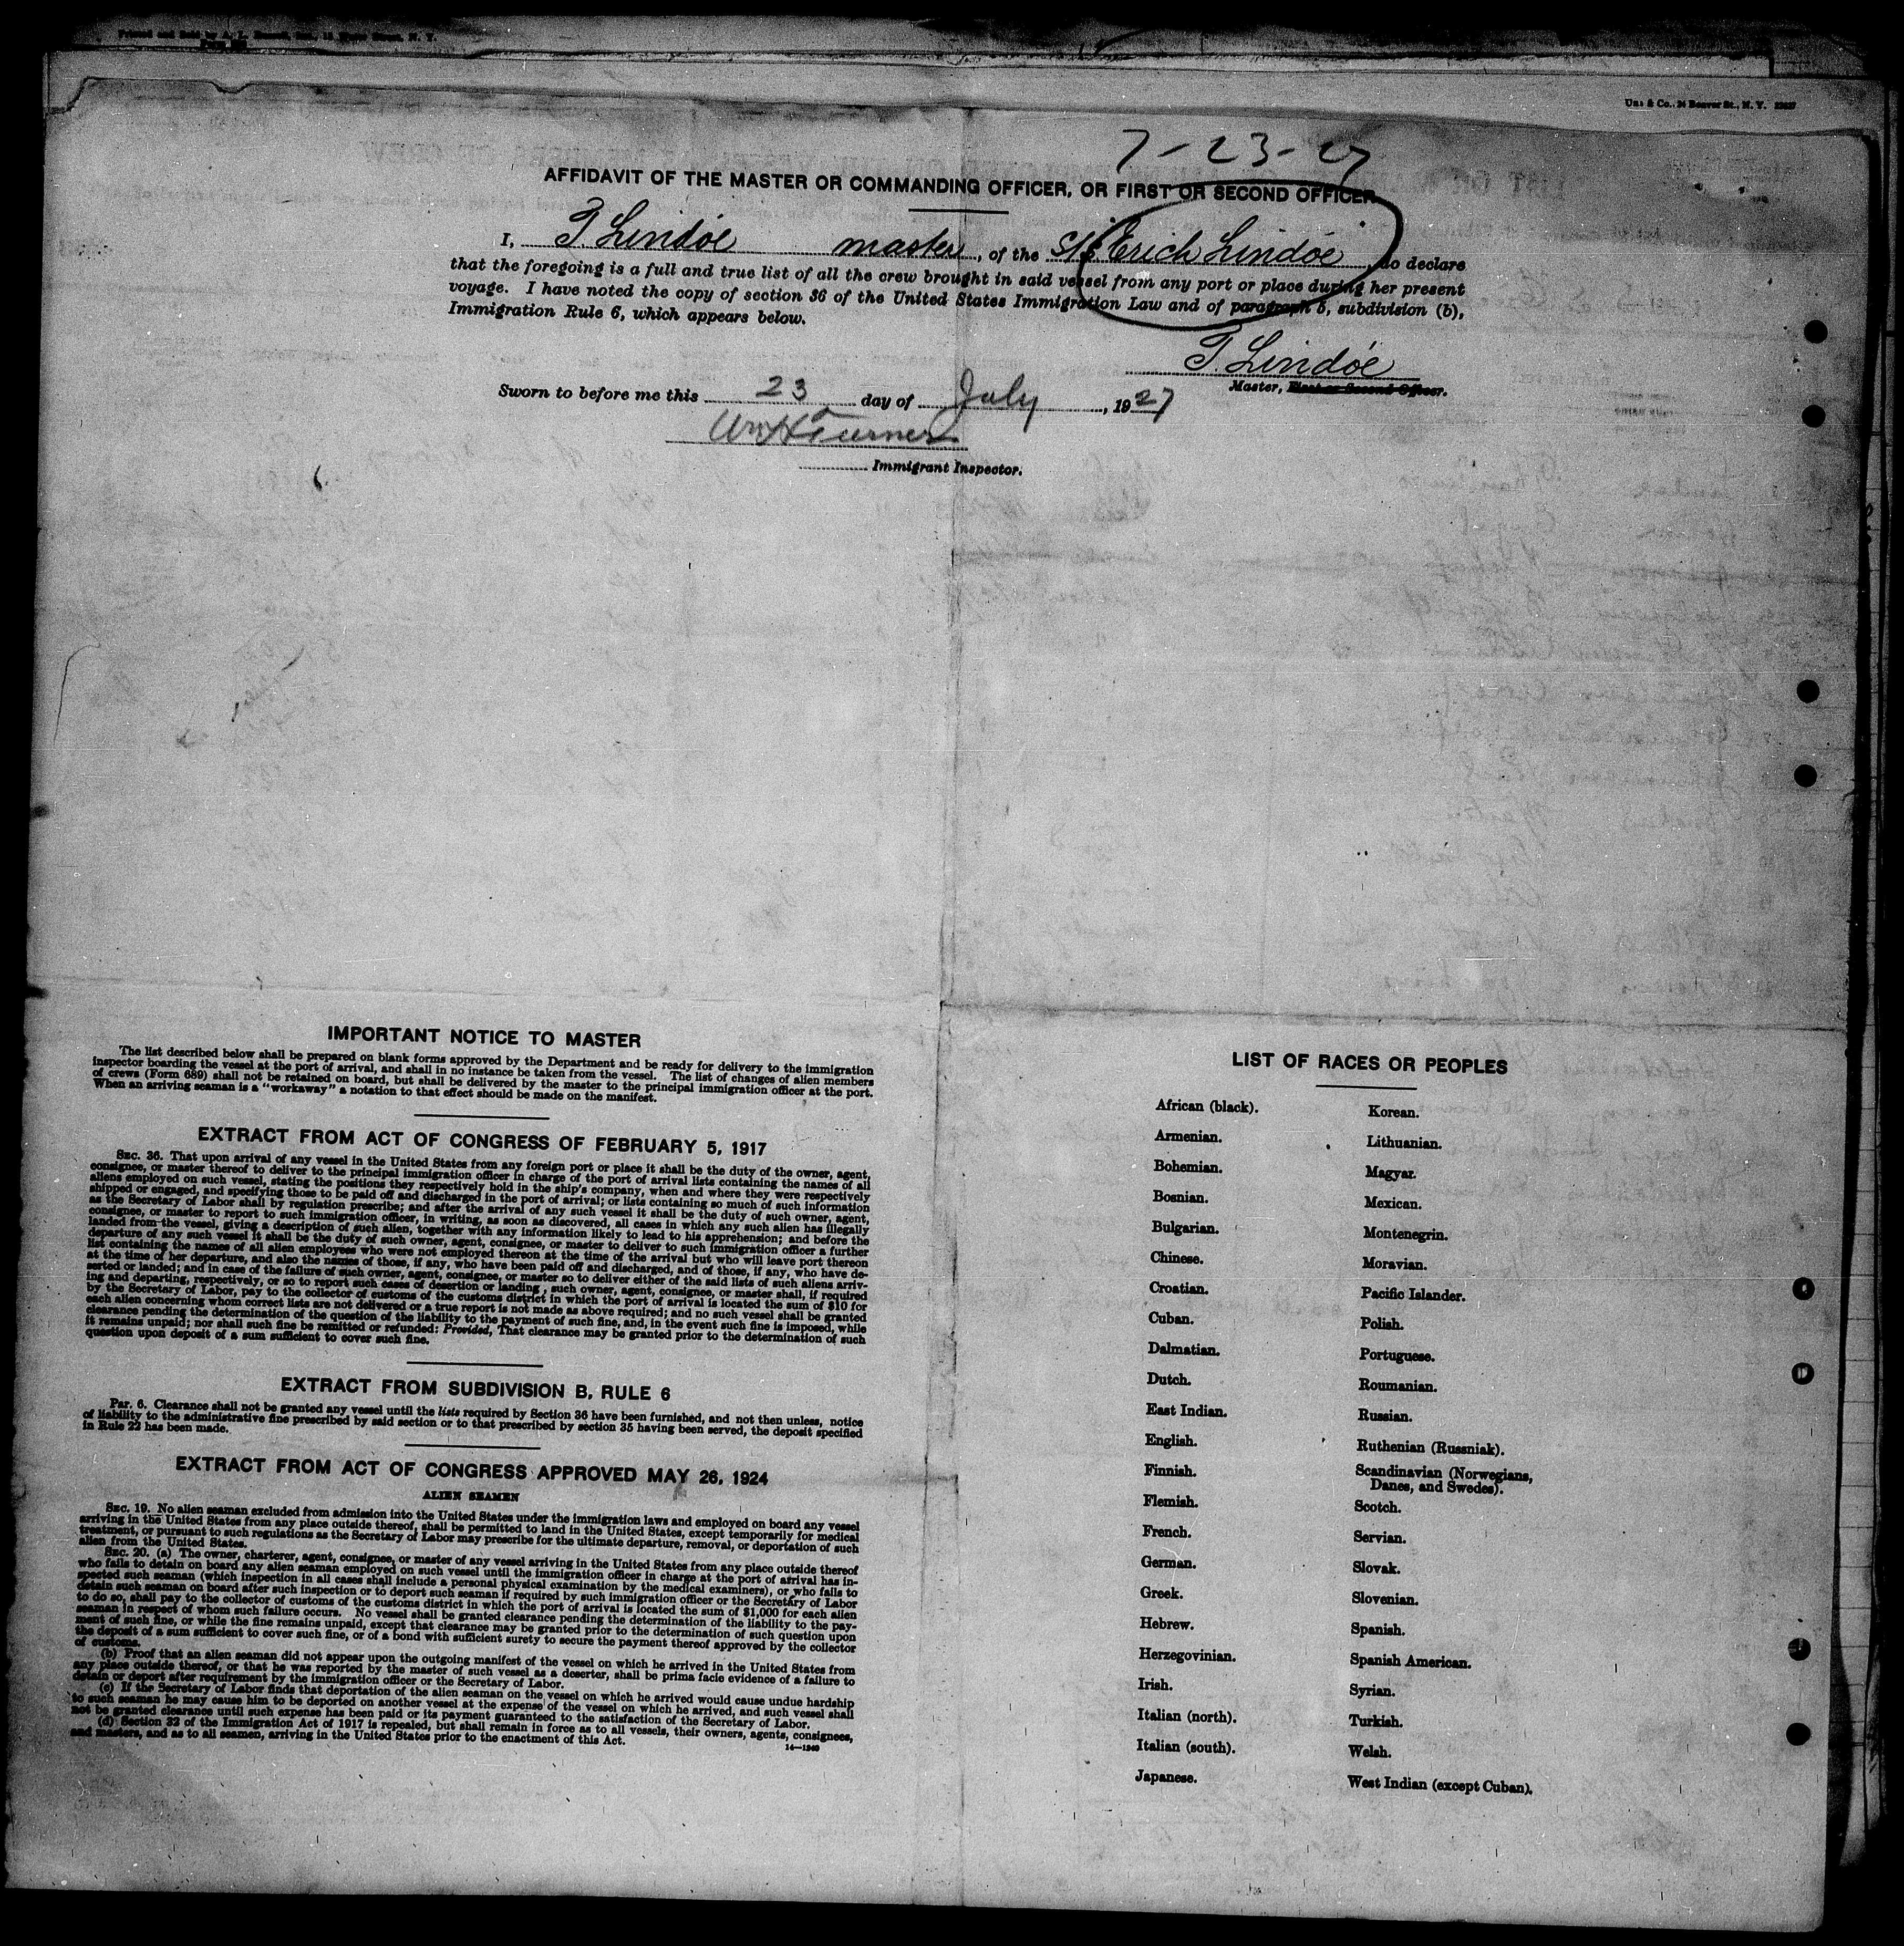 7-23-27
AFFIDAVIT OF THE MASTER OR COMMANDING OFFICER, OR FIRST OR SECOND OFFICER
I, T. Lindöe master, of the S/S Erich Lindöe, do declare
that the foregoing is a full and true list of all the crew brought in said vessel from any port or place during her present
voyage. I have noted the copy of section 36 of the United States Immigration Law and of paragraph 5, subdivision (b),
Immigration Rule 6, which appears below.
T. Lindöe
Master, First or Second Officer.
Sworn to before me this 23 day of July, 1927
Wm H Turner
Immigrant Inspector.
IMPORTANT NOTICE TO MASTER
The list described below shall be prepared on blank forms approved by the Department and be ready for delivery to the immigration
inspector boarding the vessel at the port of arrival, and shall in no instance be taken from the vessel. The list of changes of alien members
of crews (Form 689) shall not be retained on board, but shall be delivered by the master to the principal immigration officer at the port.
When an arriving seaman is a "workaway" a notation to that effect should be made on the manifest.
EXTRACT FROM ACT OF CONGRESS OF FEBRUARY 5, 1917
SEC. 36. That upon arrival of any vessel in the United States from any foreign port or place it shall be the duty of the owner, agent,
consignee, or master thereof to deliver to the principal immigration officer in charge of the port of arrival lists containing the names of all
aliens employed on such vessel, stating the positions they respectively hold in the ship's company, when and where they were respectively
shipped or engaged, and specifying those to be paid off and discharged in the port of arrival; or lists containing so much of such information
as the Secretary of Labor shall by regulation prescribe; and after the arrival of any such vessel it shall be the duty of such owner, agent,
consignee, or master to report to such immigration officer, in writing, as soon as discovered, all cases in which any such alien has illegally
landed from the vessel, giving a description of such alien, together with any information likely to lead to his apprehension; and before the
departure of any such vessel it shall be the duty of such owner, agent, consignee, or master to deliver to such immigration officer a further
list containing the names of all alien employees who were not employed thereon at the time of the arrival but who will leave port thereon
at the time of her departure, and also the names of those, if any, who have been paid off and discharged, and of those, if any, who have de-
serted or landed; and in case of the failure of such owner, agent, consignee, or master so to deliver either of the said lists of such aliens arriv-
ing and departing, respectively, or so to report such cases of desertion or landing, such owner, agent, consignee, or master shall, if required
by the Secretary of Labor, pay to the collector of customs of the customs district in which the port of arrival is located the sum of $10 for
each alien concerning whom correct lists are not delivered or a true report is not made as above required; and no such vessel shall be granted
clearance pending the determination of the question of the liability to the payment of such fine, and, in the event such fine is imposed, while
it remains unpaid; nor shall such fine be remitted or refunded: Provided, That clearance may be granted prior to the determination of such
question upon deposit of a sum sufficient to cover such fine.
EXTRACT FROM SUBDIVISION B, RULE 6
Par. 6. Clearance shall not be granted any vessel until the lists required by Section 36 have been furnished, and not then unless, notice
of liability to the administrative fine prescribed by said section or to that prescribed by section 35 having been served, the deposit specified
in Rule 22 has been made.
EXTRACT FROM ACT OF CONGRESS APPROVED MAY 26, 1924
ALIEN SEAMEN
SEC. 19. No alien seaman excluded from admission into the United States under the immigration laws and employed on board any vessel
arriving in the United States from any place outside thereof, shall be permitted to land in the United States, except temporarily for medical
treatment, or pursuant to such regulations as the Secretary of Labor may prescribe for the ultimate departure, removal, or deportation of such
alien from the United States.
SEC. 20. (a) The owner, charterer, agent, consignee, or master of any vessel arriving in the United States from any place outside thereof
who fails to detain on board any alien seaman employed on such vessel until the immigration officer in charge at the port of arrival has in-
spected such seaman (which inspection in all cases shall include a personal physical examination by the medical examiners), or who fails to
detain such seaman on board after such inspection or to deport such seaman if required by such immigration officer or the Secretary of Labor
to do so, shall pay to the collector of customs of the customs district in which the port of arrival is located the sum of $1,000 for each alien
seaman in respect of whom such failure occurs. No vessel shall be granted clearance pending the determination of the liability to the pay-
ment of such fine, or while the fine remains unpaid, except that clearance may be granted prior to the determination of such question upon
the deposit of a sum sufficient to cover such fine, or of a bond with sufficient surety to secure the payment thereof approved by the collector
of customs.
(b) Proof that an alien seaman did not appear upon the outgoing manifest of the vessel on which he arrived in the United States from
any place outside thereof, or that he was reported by the master of such vessel as a deserter, shall be prima facie evidence of a failure to
detain or deport after requirement by the immigration officer or the Secretary of Labor.
(c) If the Secretary of Labor finds that deportation of the alien seaman on the vessel on which he arrived would cause undue hardship
to such seaman he may cause him to be deported on another vessel at the expense of the vessel on which he arrived, and such vessel shall
not be granted clearance until such expense has been paid or its payment guaranteed to the satisfaction of the Secretary of Labor.
(d) Section 32 of the Immigration Act of 1917 is repealed, but shall remain in force as to all vessels, their owners, agents, consignees,
and masters, and as to all seamen, arriving in the United States prior to the enactment of this Act.
LIST OF RACES OR PEOPLES
African (black).
Armenian.
Bohemian.
Bosnian.
Bulgarian.
Chinese.
Croatian.
Cuban.
Dalmatian.
Dutch.
East Indian.
English.
Finnish.
Flemish.
French.
German.
Greek.
Hebrew.
Herzegovinian.
Irish.
Italian (north).
Italian (south).
Japanese.
Korean.
Lithuanian.
Magyar.
Mexican.
Montenegrin.
Moravian.
Pacific Islander.
Polish.
Portuguese.
Roumanian.
Russian.
Ruthenian (Russniak).
Scandinavian (Norwegians,
Danes, and Swedes).
Scotch.
Servian.
Slovak.
Slovenian.
Spanish.
Spanish American.
Syrian.
Turkish.
Welsh.
West Indian (except Cuban).